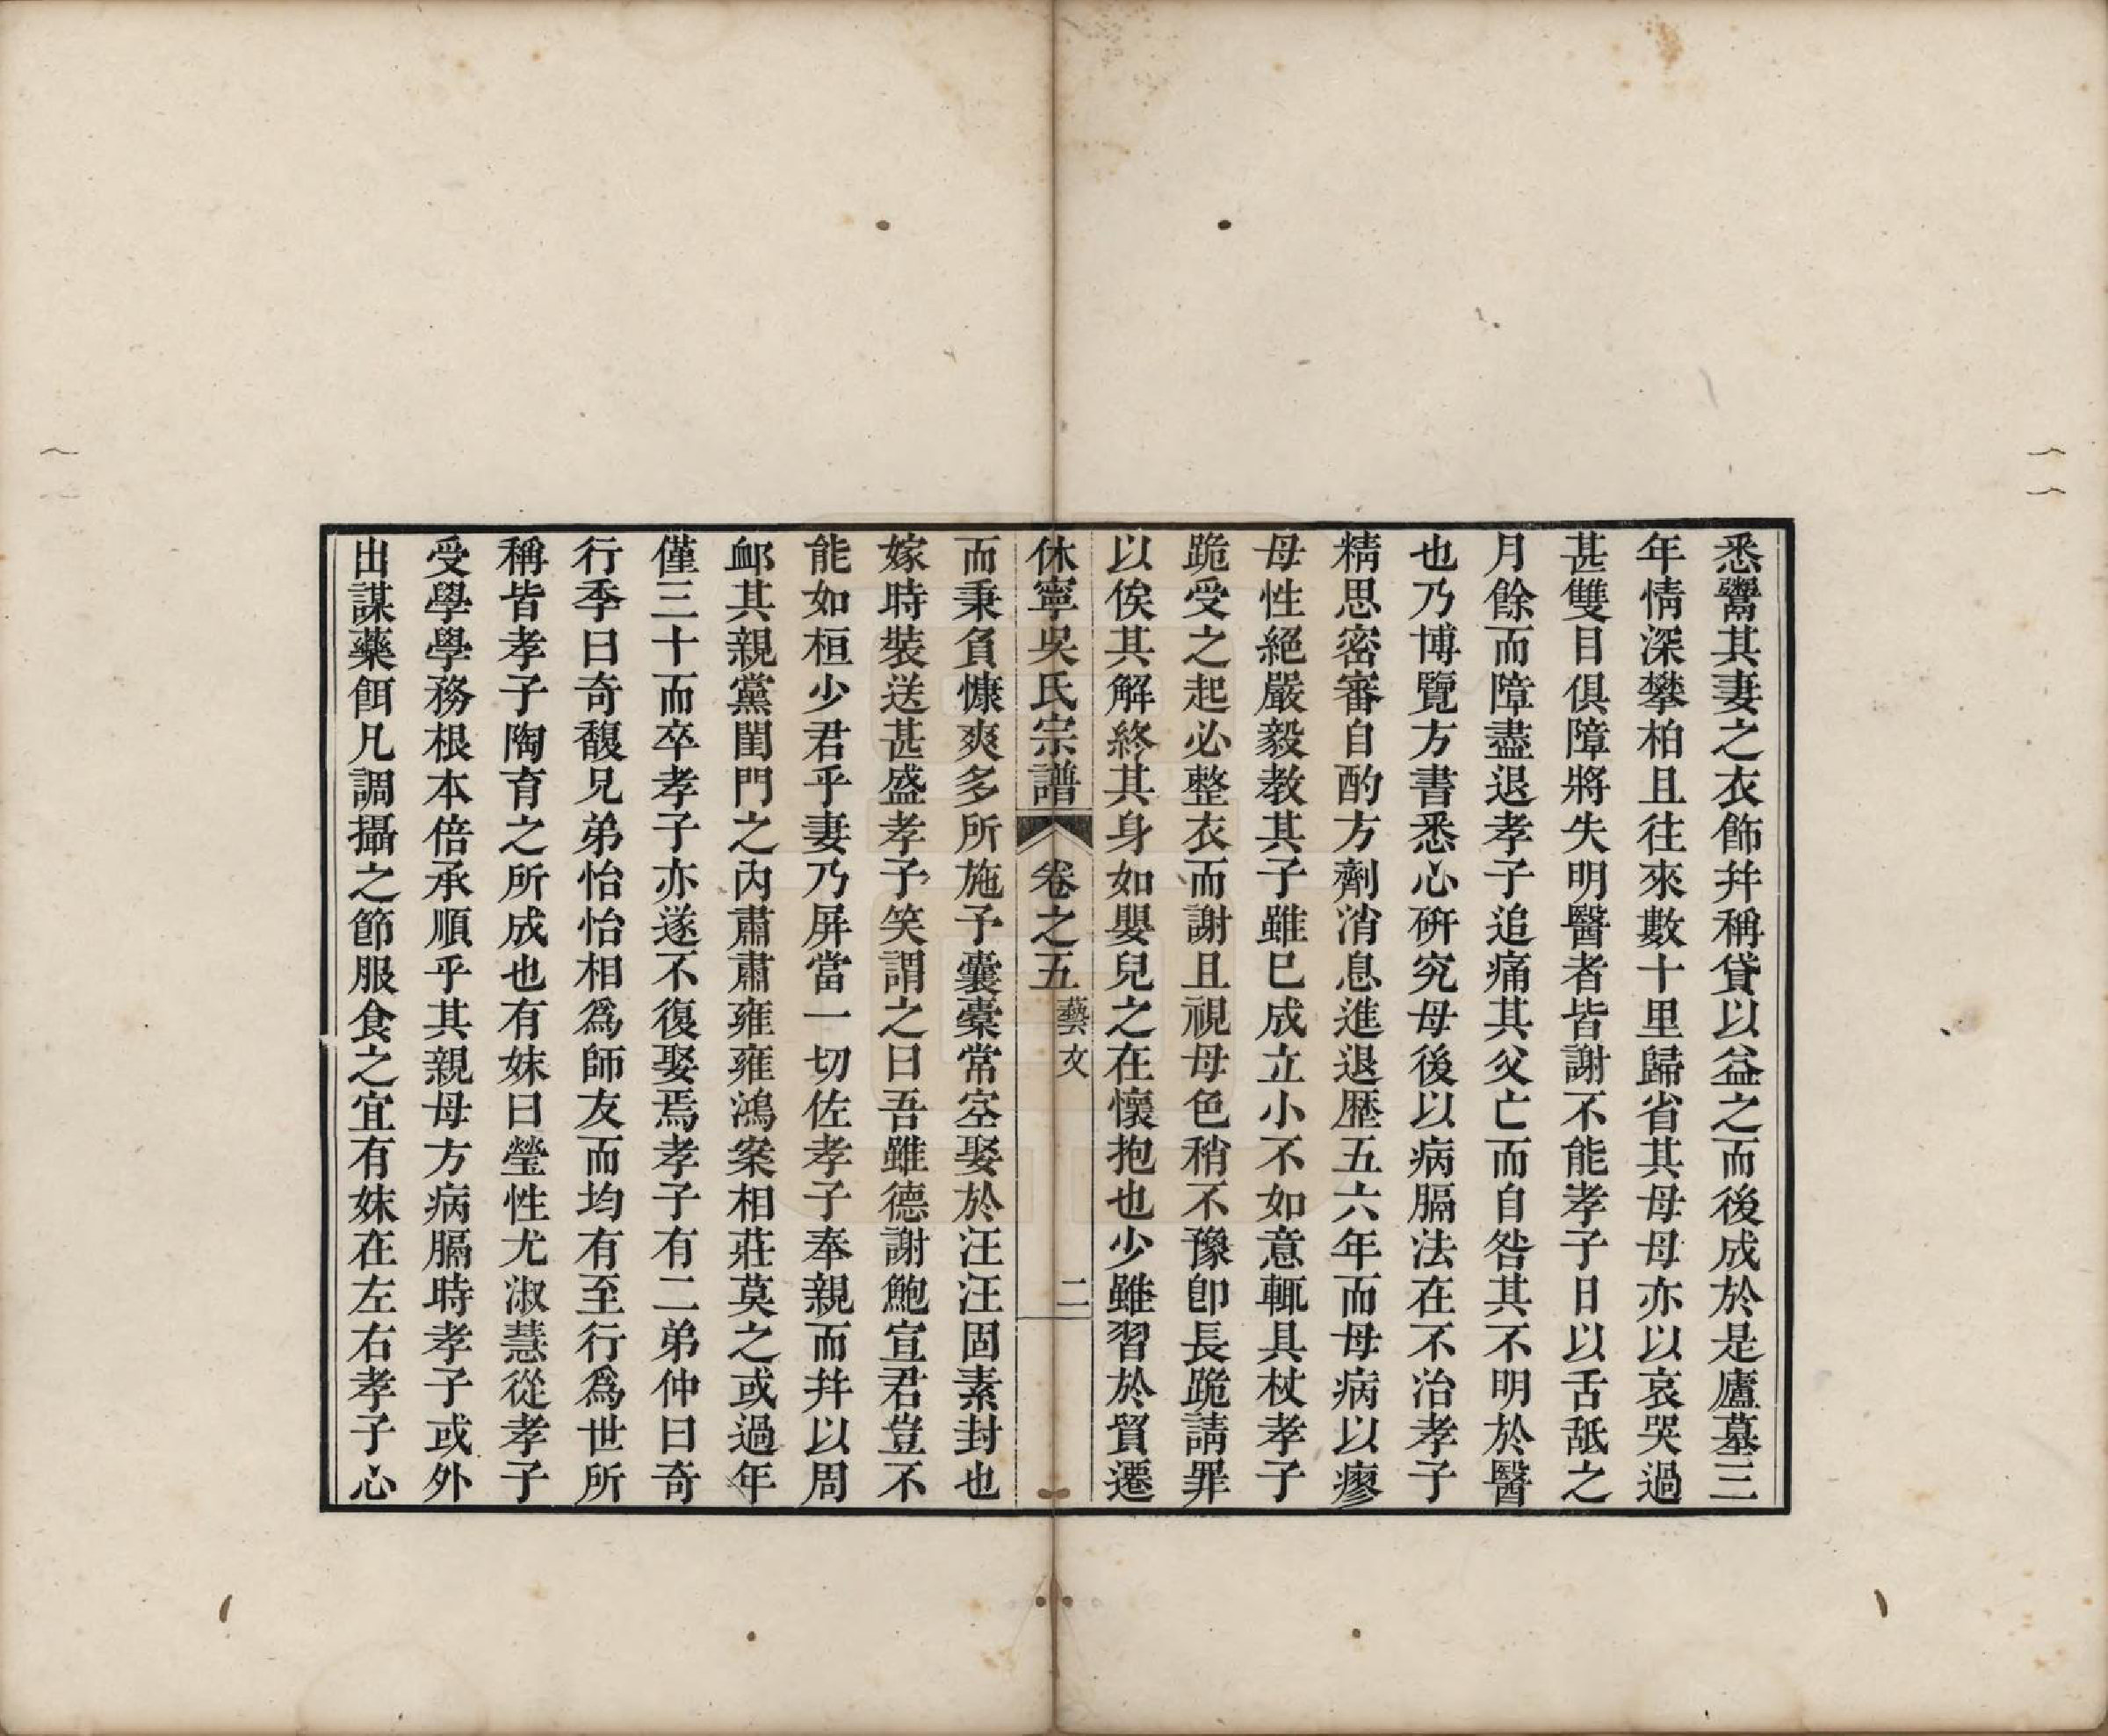 悉鬻其妻之衣飾幷稱貸以益之而後成於是廬墓三
年情深攀柏且往來數十里歸省其母母亦以哀哭過
甚雙目俱障將失明醫者皆謝不能孝子日以舌舐之
月餘而障盡退孝子追痛其父亡而自咎其不明於醫
也乃博覽方書悉心硏究母後以病膈法在不治孝子
精思密審自酌方劑消息進退歴五六年而母病以瘳
母性絕嚴毅教其子雖已成立小不如意輒具杖孝子
跪受之起必整衣而謝且視母色稍不豫卽長跪請罪
以俟其解終其身如嬰兒之在懷抱也少雖習於貿遷
休寧吳氏宗譜 卷之五 藝文 二
而秉負慷爽多所施予囊橐常空娶於汪汪固素封也
嫁時裝送甚盛孝子笑謂之曰吾雖德謝鮑宣君豈不
能如桓少君乎妻乃屏當一切佐孝子奉親而幷以周
䘏其親黨閨門之內肅肅雍雍鴻案相莊莫之或過年
僅三十而卒孝子亦遂不復娶焉孝子有二弟仲曰奇
行季曰奇馥兄弟怡怡相爲師友而均有至行爲世所
稱皆孝子陶育之所成也有妹曰瑩性尤淑慧從孝子
受學學務根本倍承順乎其親母方病膈時孝子或外
出謀藥餌凡調攝之節服食之宜有妹在左右孝子心